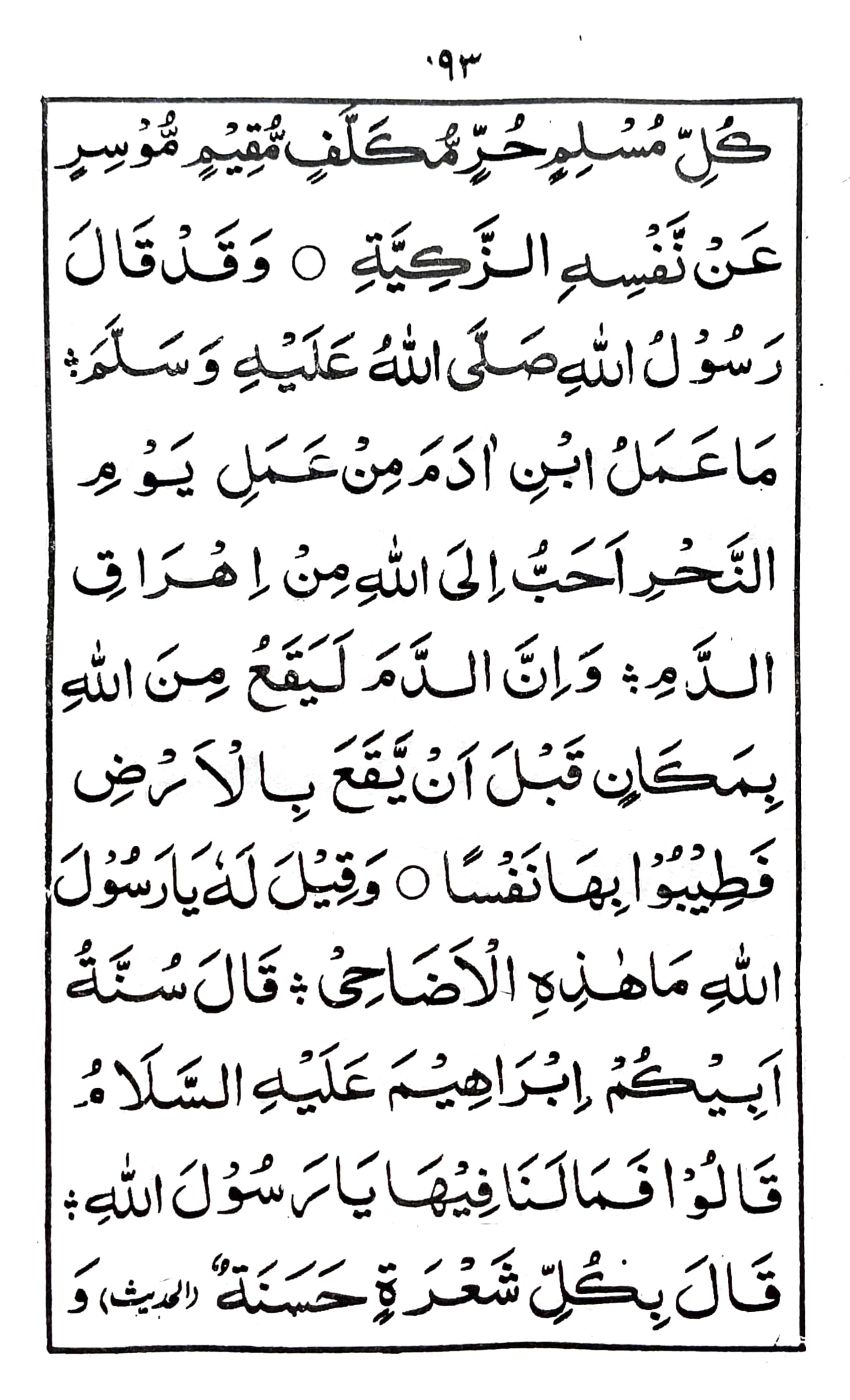 ٠٩٣
كُلِّ مُسْلِمٍ حُرٍّ مُّكَلَّفٍ مُّقِيْمٍ مُّوْسِرٍ
عَنْ نَّفْسِهِ الزَّكِيَّةِ ○ وَقَدْ قَالَ
رَسُوْلُ اللّٰهِ صَلَّى اللّٰهُ عَلَيْهِ وَسَلَّمَ؞
مَا عَمَلُ ابْنِ اٰدَمَ مِنْ عَمَلِ يَوْمِ
النَّحْرِ اَحَبُّ اِلَى اللّٰهِ مِنْ اِهْرَاقِ
الدَّمِ؞ وَاِنَّ الدَّمَ لَيَقَعُ مِنَ اللّٰهِ
بِمَكَانٍ قَبْلَ اَنْ يَّقَعَ بِالْاَرْضِ
فَطِيْبُوْا بِهَا نَفْسًا ○ وَقِيْلَ لَهٗ يَا رَسُوْلَ
اللّٰهِ مَا هٰذِهِ الْاَضَاحِىْ؞ قَالَ سُنَّةُ
اَبِيْكُمْ اِبْرَاهِيْمَ عَلَيْهِ السَّلَامُ
قَالُوْا فَمَا لَنَا فِيْهَا يَا رَسُوْلَ اللّٰهِ؞
قَالَ بِكُلِّ شَعْرَةٍ حَسَنَةٌ (الحديث) وَ